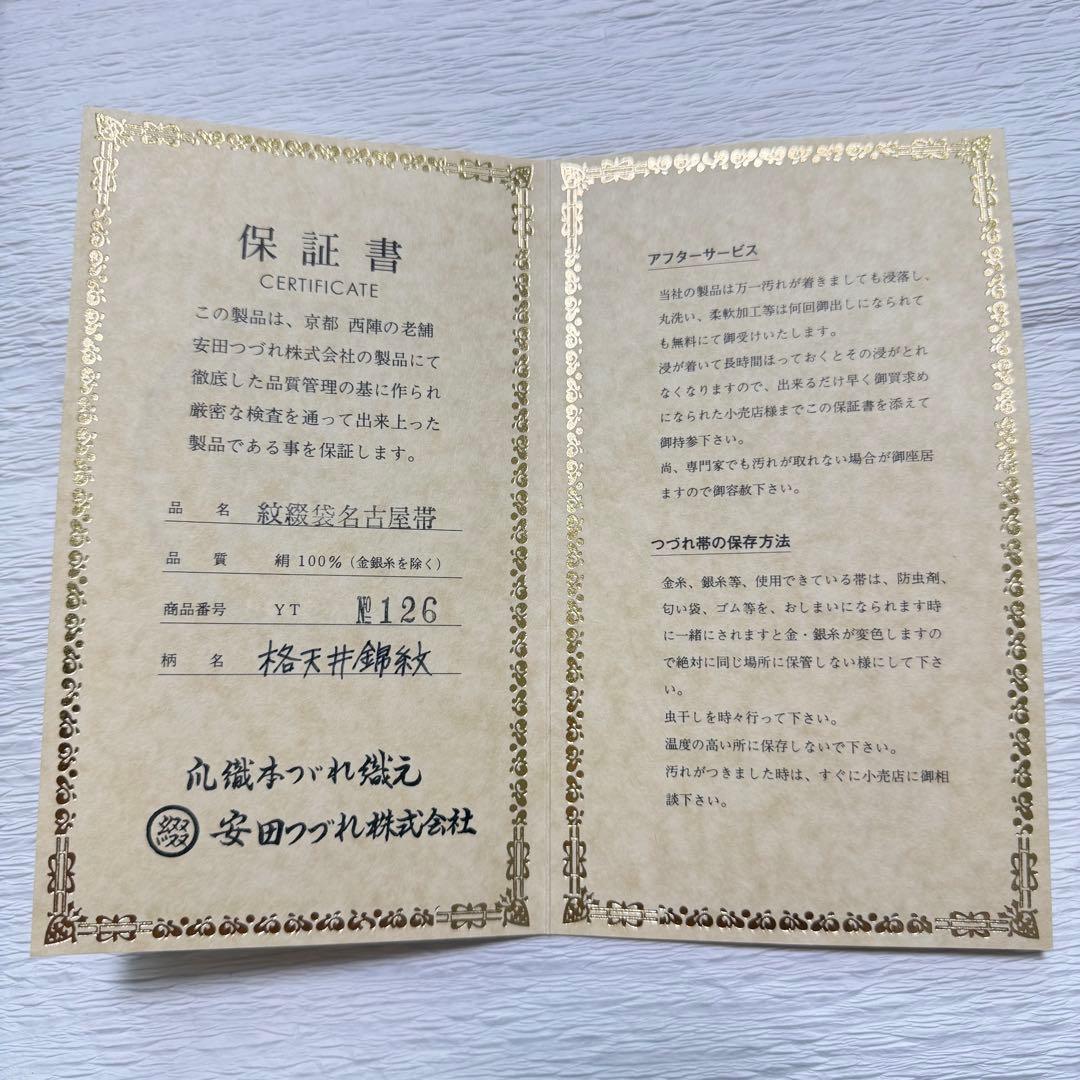 保証書
CERTIFICATE
この製品は、京都 西陣の老舗
安田つづれ株式会社の製品にて
徹底した品質管理の基に作られ
厳密な検査を通って出来上った
製品である事を保証します。
品 名 紋綴袋名古屋帯
品 質 絹 100%（金銀糸を除く）
商品番号 YT №126
柄 名 格天井錦紋
爪織本つづれ織元
綴 安田つづれ株式会社
アフターサービス
当社の製品は万一汚れが着きましても浸落し、
丸洗い、柔軟加工等は何回御出しになられて
も無料にて御受けいたします。
浸が着いて長時間ほっておくとその浸がとれ
なくなりますので、出来るだけ早く御買求め
になられた小売店様までこの保証書を添えて
御持参下さい。
尚、専門家でも汚れが取れない場合が御座居
ますので御容赦下さい。
つづれ帯の保存方法
金糸、銀糸等、使用できている帯は、防虫剤、
匂い袋、ゴム等を、おしまいになられます時
に一緒にされますと金・銀糸が変色しますの
で絶対に同じ場所に保管しない様にして下さ
い。
虫干しを時々行って下さい。
温度の高い所に保存しないで下さい。
汚れがつきました時は、すぐに小売店に御相
談下さい。